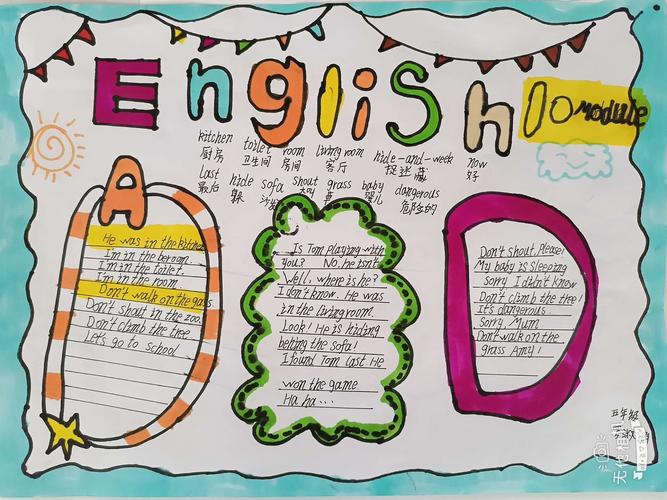 English 10 Module
kitchen toilet room living room hide-and-week now
厨房 卫生间 房间 客厅 捉迷藏 好
last hide sofa shout grass baby dangerous
最后 躲 沙发 大叫 草 婴儿 危险的
A
He was in the kitchen
I'm in the beroon.
I'm in the toilet.
I'm in the room
Don't walk on the gass.
Don't shout in the zoo.
Don't climb the tree
Let's go to school
Is Tom playing with
you? No. he isn't
Well, where is he?
I don't know. He was
in the living room.
Look! He is hiding
behing the sofa!
I found Tom last He
won the game
Ha ha...
Don't shout, please!
My baby is sleeping
Sorry I didn't know
Don't climb the tree!
It's dangerous.
Sorry, Mum
Don't walk on the
grass Amy!
五年级
无他相机